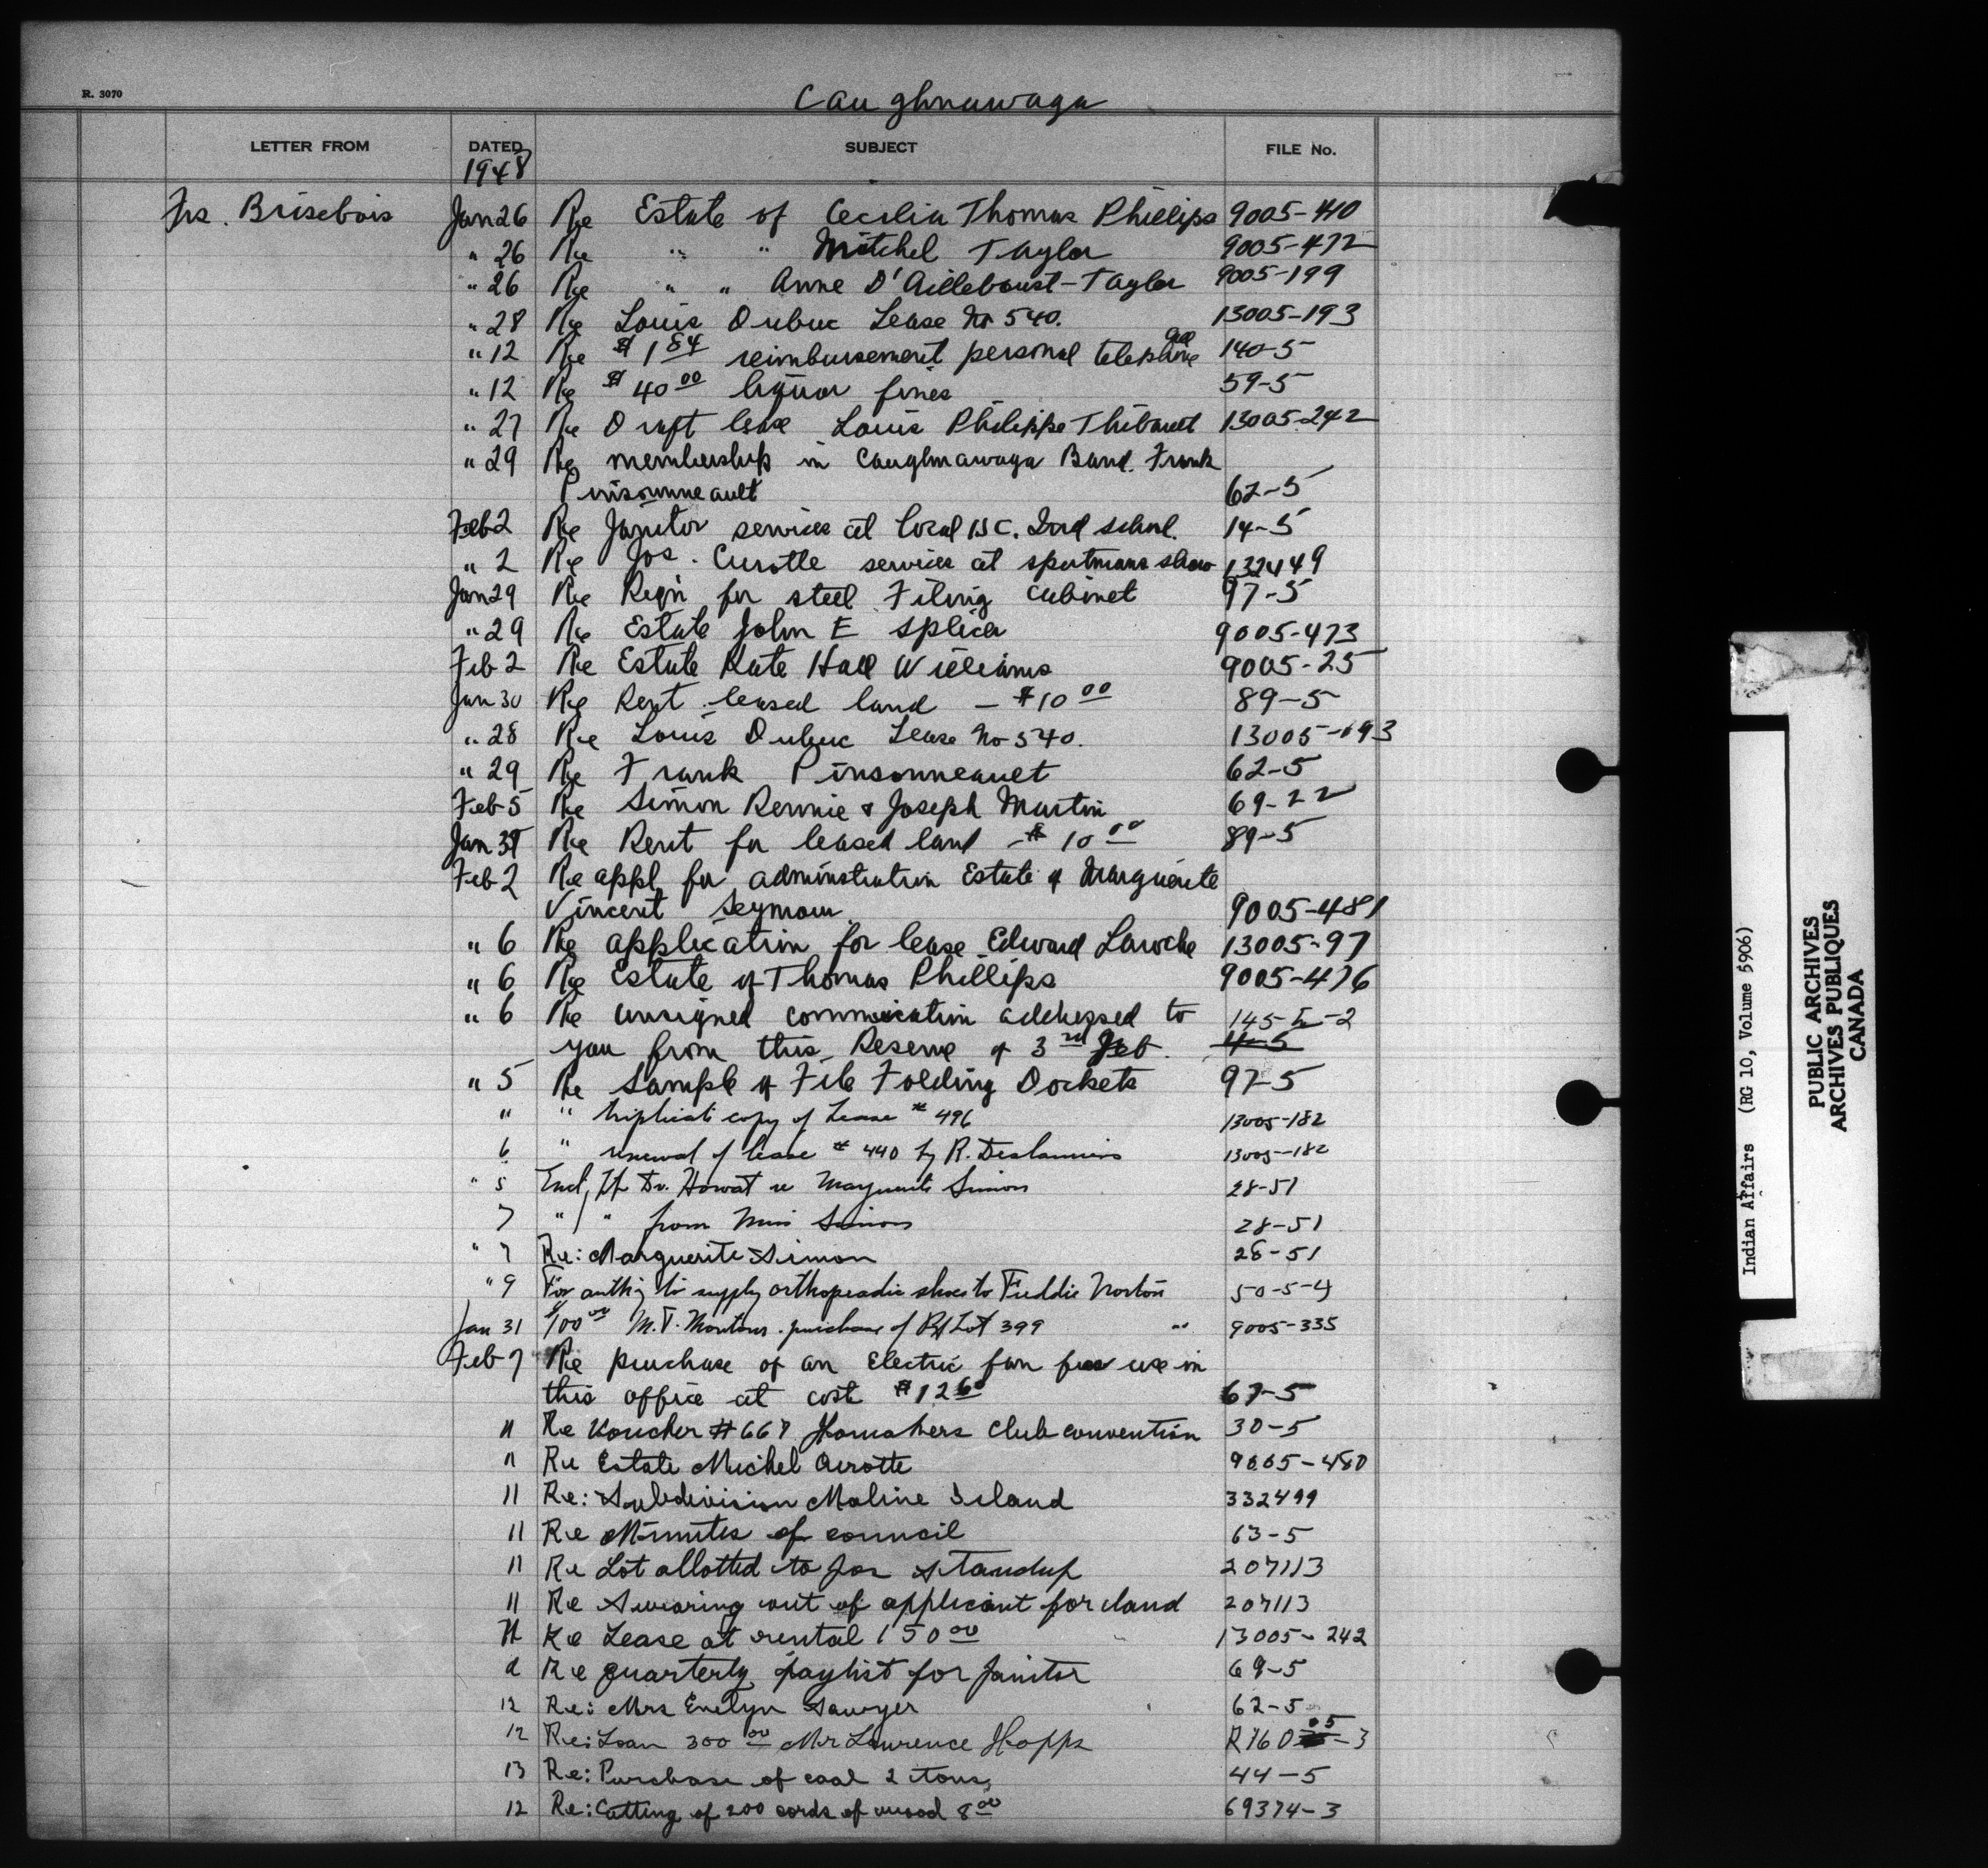 R. 3070
Caughnawaga
LETTER FROM DATED SUBJECT FILE No.
1948
Frs. Brisebois Jan 26 Re Estate of Cecilia Thomas Phillips 9005-410
" 26 Re " " Mitchel Taylor 9005-472
" 26 Re " " Anne D'Ailleboust-Taylor 9005-199
" 28 Re Louis Dubuc Lease No 540. 13005-193
" 12 Re $1 84 reimbursement personal telephone call 140-5
" 12 Re $40 00 liquor fines 59-5
" 27 Re Draft lease Louis Philippe Thibault 13005-242
" 29 Re membership in Caughnawaga Band. Frank
Pinsonneault 62-5
Feb 2 Re Janitor services at local R.C. Ind school. 14-5
" 2 Re Jos. Curotte services at sportmans show 132449
Jan 29 Re Reqn for steel Filing cabinet 97-5
" 29 Re Estate John E Splicer 9005-473
Feb 2 Re Estate Kate Hall Williams 9005-25
Jan 30 Re Rent leased land - $10 00 89-5
" 28 Re Louis Dubuc Lease No 540. 13005-193
" 29 Re Frank Pinsonneault 62-5
Feb 5 Re Simon Rennie & Joseph Martin 69-22
Jan 31 Re Rent for leased land - $10 00 89-5
Feb 2 Re appl for administration Estate of Marguerite
Vincent Seymour 9005-481
" 6 Re application for lease Edward Laroche 13005-97
" 6 Re Estate of Thomas Phillips 9005-476
" 6 Re unsigned commication addressed to 145-5-2
you from this Reserve of 3rd Feb. 4-5
" 5 Re Sample of File Folding Dockets 97-5
" " triplicate copy of Lease # 496 13005-182
6 " renewal of lease # 440 by R. Deslauriers 13005-182
" 5 Encl, lt Dr. Howat re Marguerite Simon 28-51
7 " " from Miss Simon 28-51
" 7 Re: Marguerite Simon 28-51
" 9 For auth'y to supply orthopeadic shoes to Freddie Norton 50-5-4
Jan 31 $100 00 M.T. Montour. purchase of Pt Lot 399 " 9005-335
Feb 7 Re purchase of an Electric fan for use in
this office at cost $12 60 67-5
11 Re Voucher # 667 Homakers Club convention 30-5
11 Re Estate Michel Curotte 9005-480
11 Re: Subdivision Maline Island 332499
11 Re Minutes of council 63-5
11 Re Lot allotted to Jos Standup 207113
11 Re Swearing out of applicant for land 207113
11 Re Lease at rental 150 00 13005-242
Re quarterly paylist for Janitor 69-5
12 Re: Mrs Evelyn Sawyer 62-5
12 Re: Loan 300 00 Mr Lawrence Hopps R160 05-3
13 Re: Purchase of coal 2 tons, 44-5
12 Re: Cutting of 200 cords of wood 8 00 69374-3
Indian Affairs (RG 10, Volume 5906)
PUBLIC ARCHIVES
ARCHIVES PUBLIQUES
CANADA